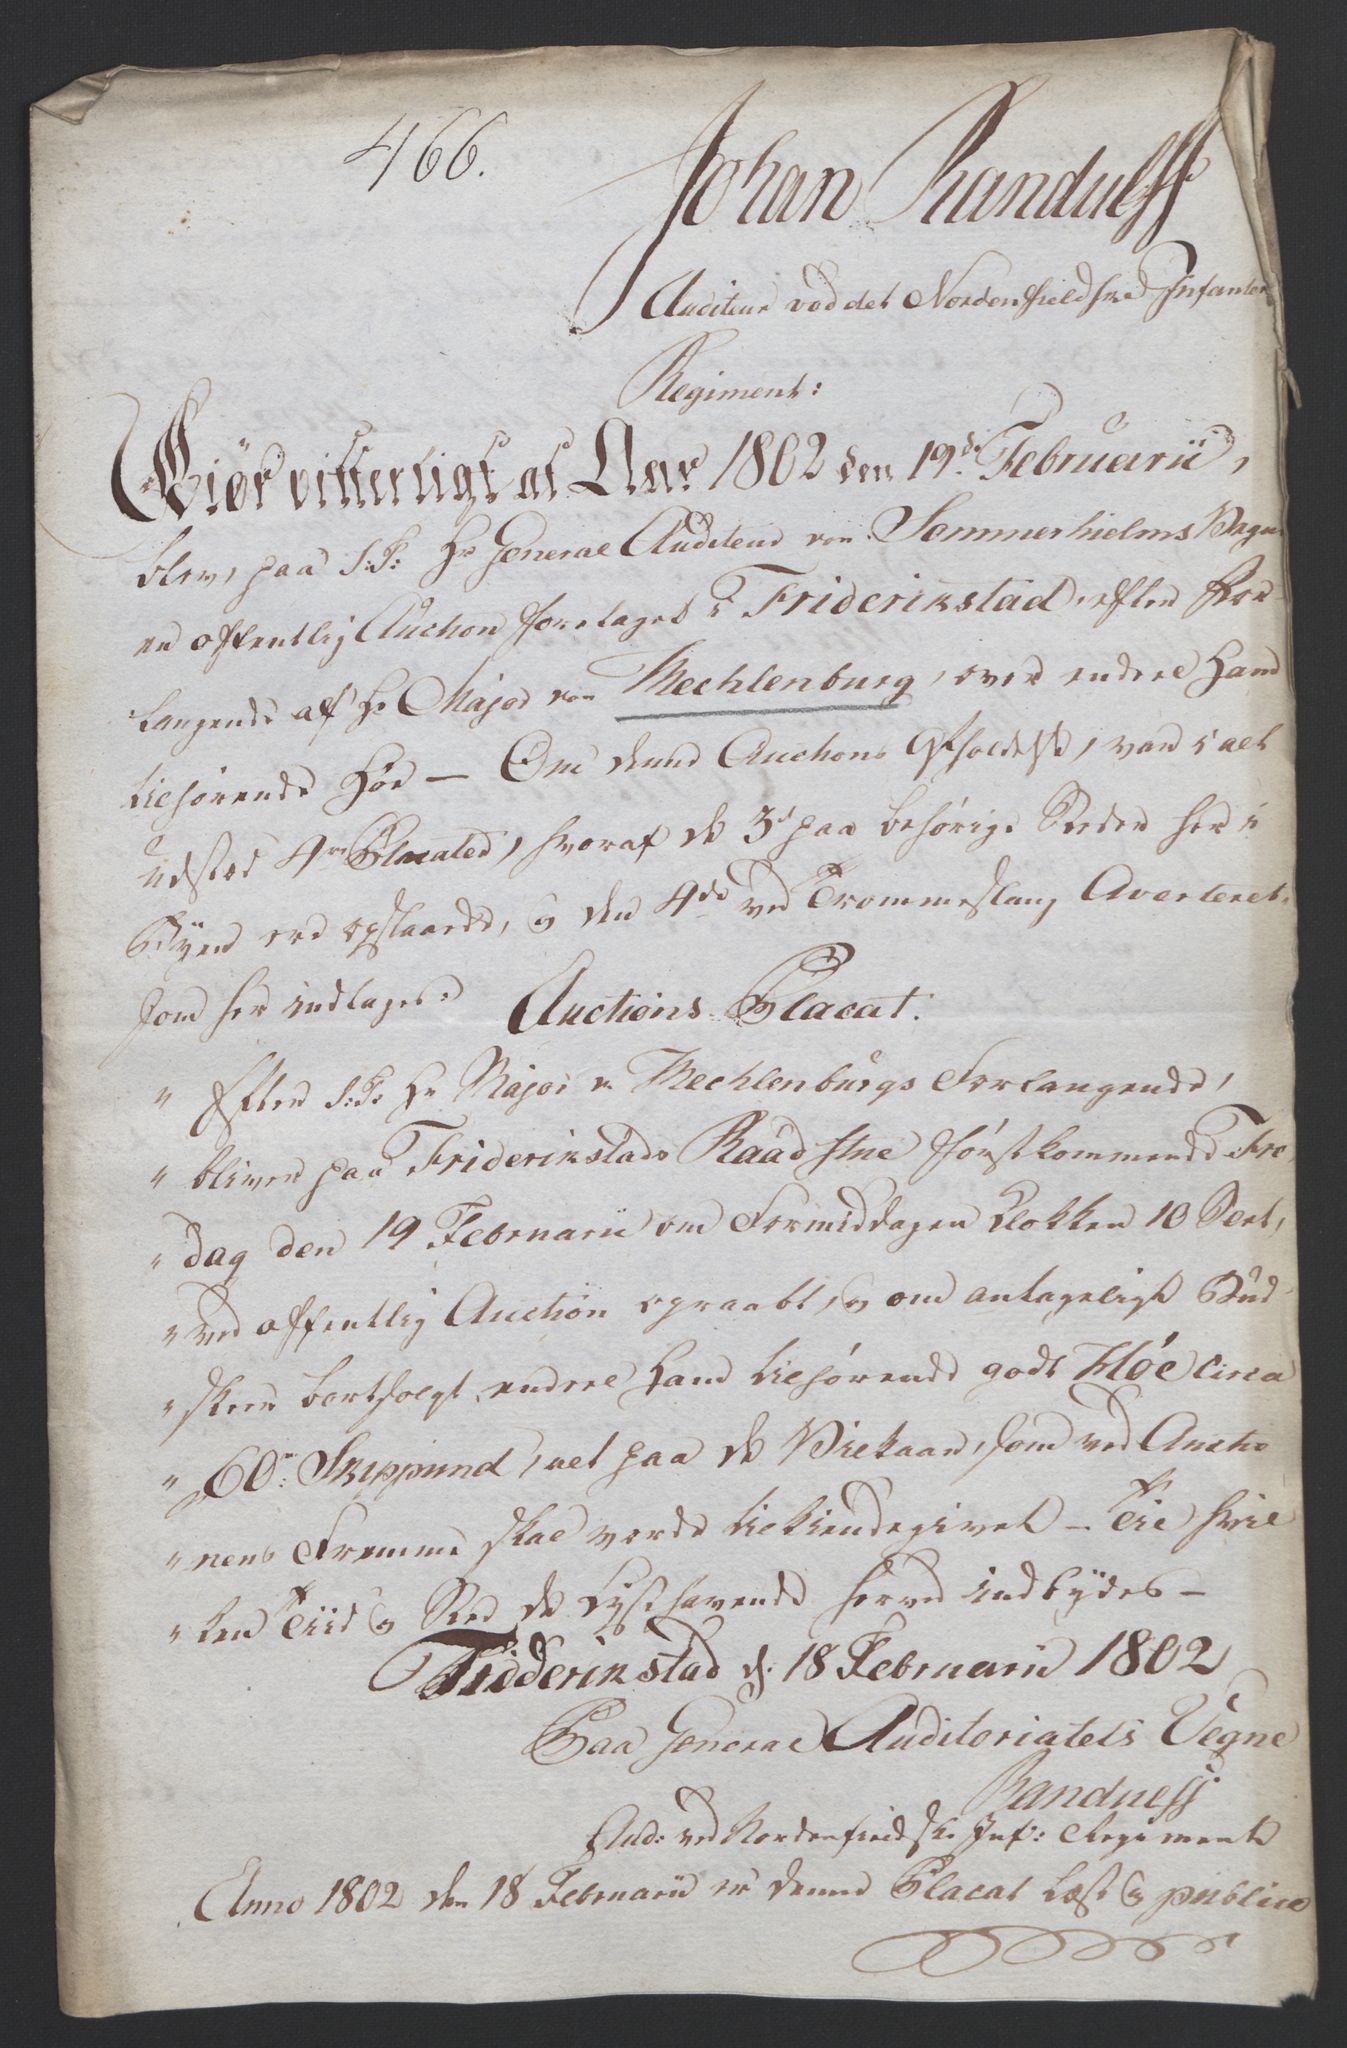 466.
Johan Randulff
Auditeur ved det Nordenfieldske Infanter
Regiment:
Giør vitterligt at Aar 1802 den 19de Februarii,
blev, paa S:T: Hr General Auditeur von Sommerhielms Vegne
en offentlig Auction foretaget i Friderikstad, efter For-
langende af Hr Major von Mechlenburg, over endeel Ham
tilhørende Høe — Om denne Auctions Afholdelse, var i alt
udsted 4re Placater, hvoraf de 3de paa behørige Steder her i
Byen ere opslaaede, og den 4de ved Trommeslag Averteret,
som her indtages:
Auctions-Placat.
" Efter S:T: Hr Major v. Mechlenburgs Forlangende,
" bliver paa Friderikstads Raadstue førstkommende Fre
" dag den 19 Februarii om Formiddagen Klokken 10 Slet,
" ved offentlig Auction opraabt, og om antageligt Bud
" skeer bortsolgt, endeel Ham tilhørende godt Høe circa
" 60 Skippund, alt paa de Vilkaar, som ved Auctio
" nens Fremme skal vorde tilkiendegivet — Til hvil
" ken Tiid og Sted de Lysthavende herved indbydes —
Fridderikstad d. 18 Februarii 1802
Paa General Auditoriatets Vegne
Randulff.
Aud: ved Nordenfieldske Inf: Regiment
Anno 1802 den 18 Februarii er denne Placat Læst og public